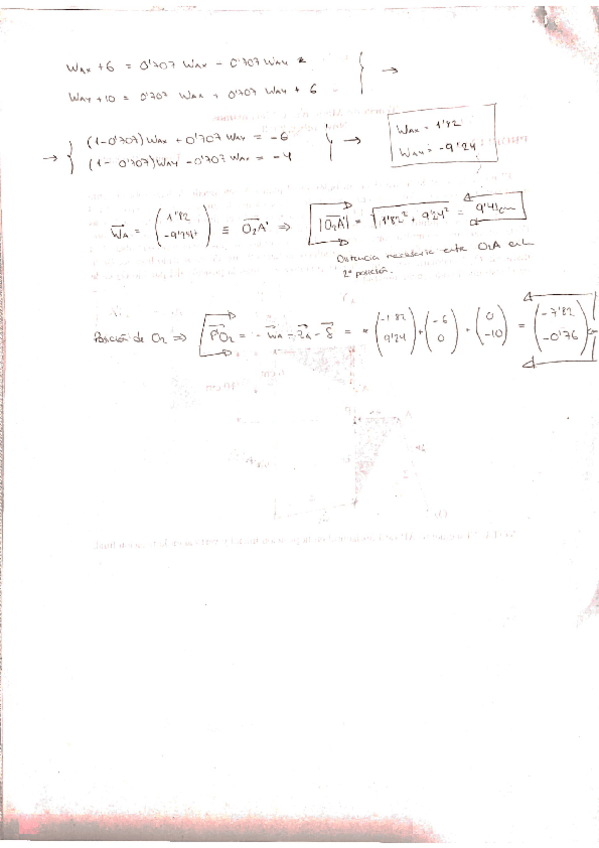 WAx + 6 = 0'707 WAx - 0'707 WAy
WAy + 10 = 0'707 WAx + 0'707 WAy + 6 } →
→ { (1-0'707) WAx + 0'707 WAy = -6
(1-0'707) WAy - 0'707 WAx = -4 } →
WAx = 1'82
WAy = -9'24
WA = (1'82 -9'24) ≡ O2A' ⇒ |O2A'| = √1'82² + 9'24² = 9'41 cm
Distancia necesaria entre O2A en la
2ª posición.
Posición de O2 ⇒ PO2 = - WA - ZA - δ = (-1'82 9'24) + (-6 0) + (0 -10) = (-7'82 -0'76)